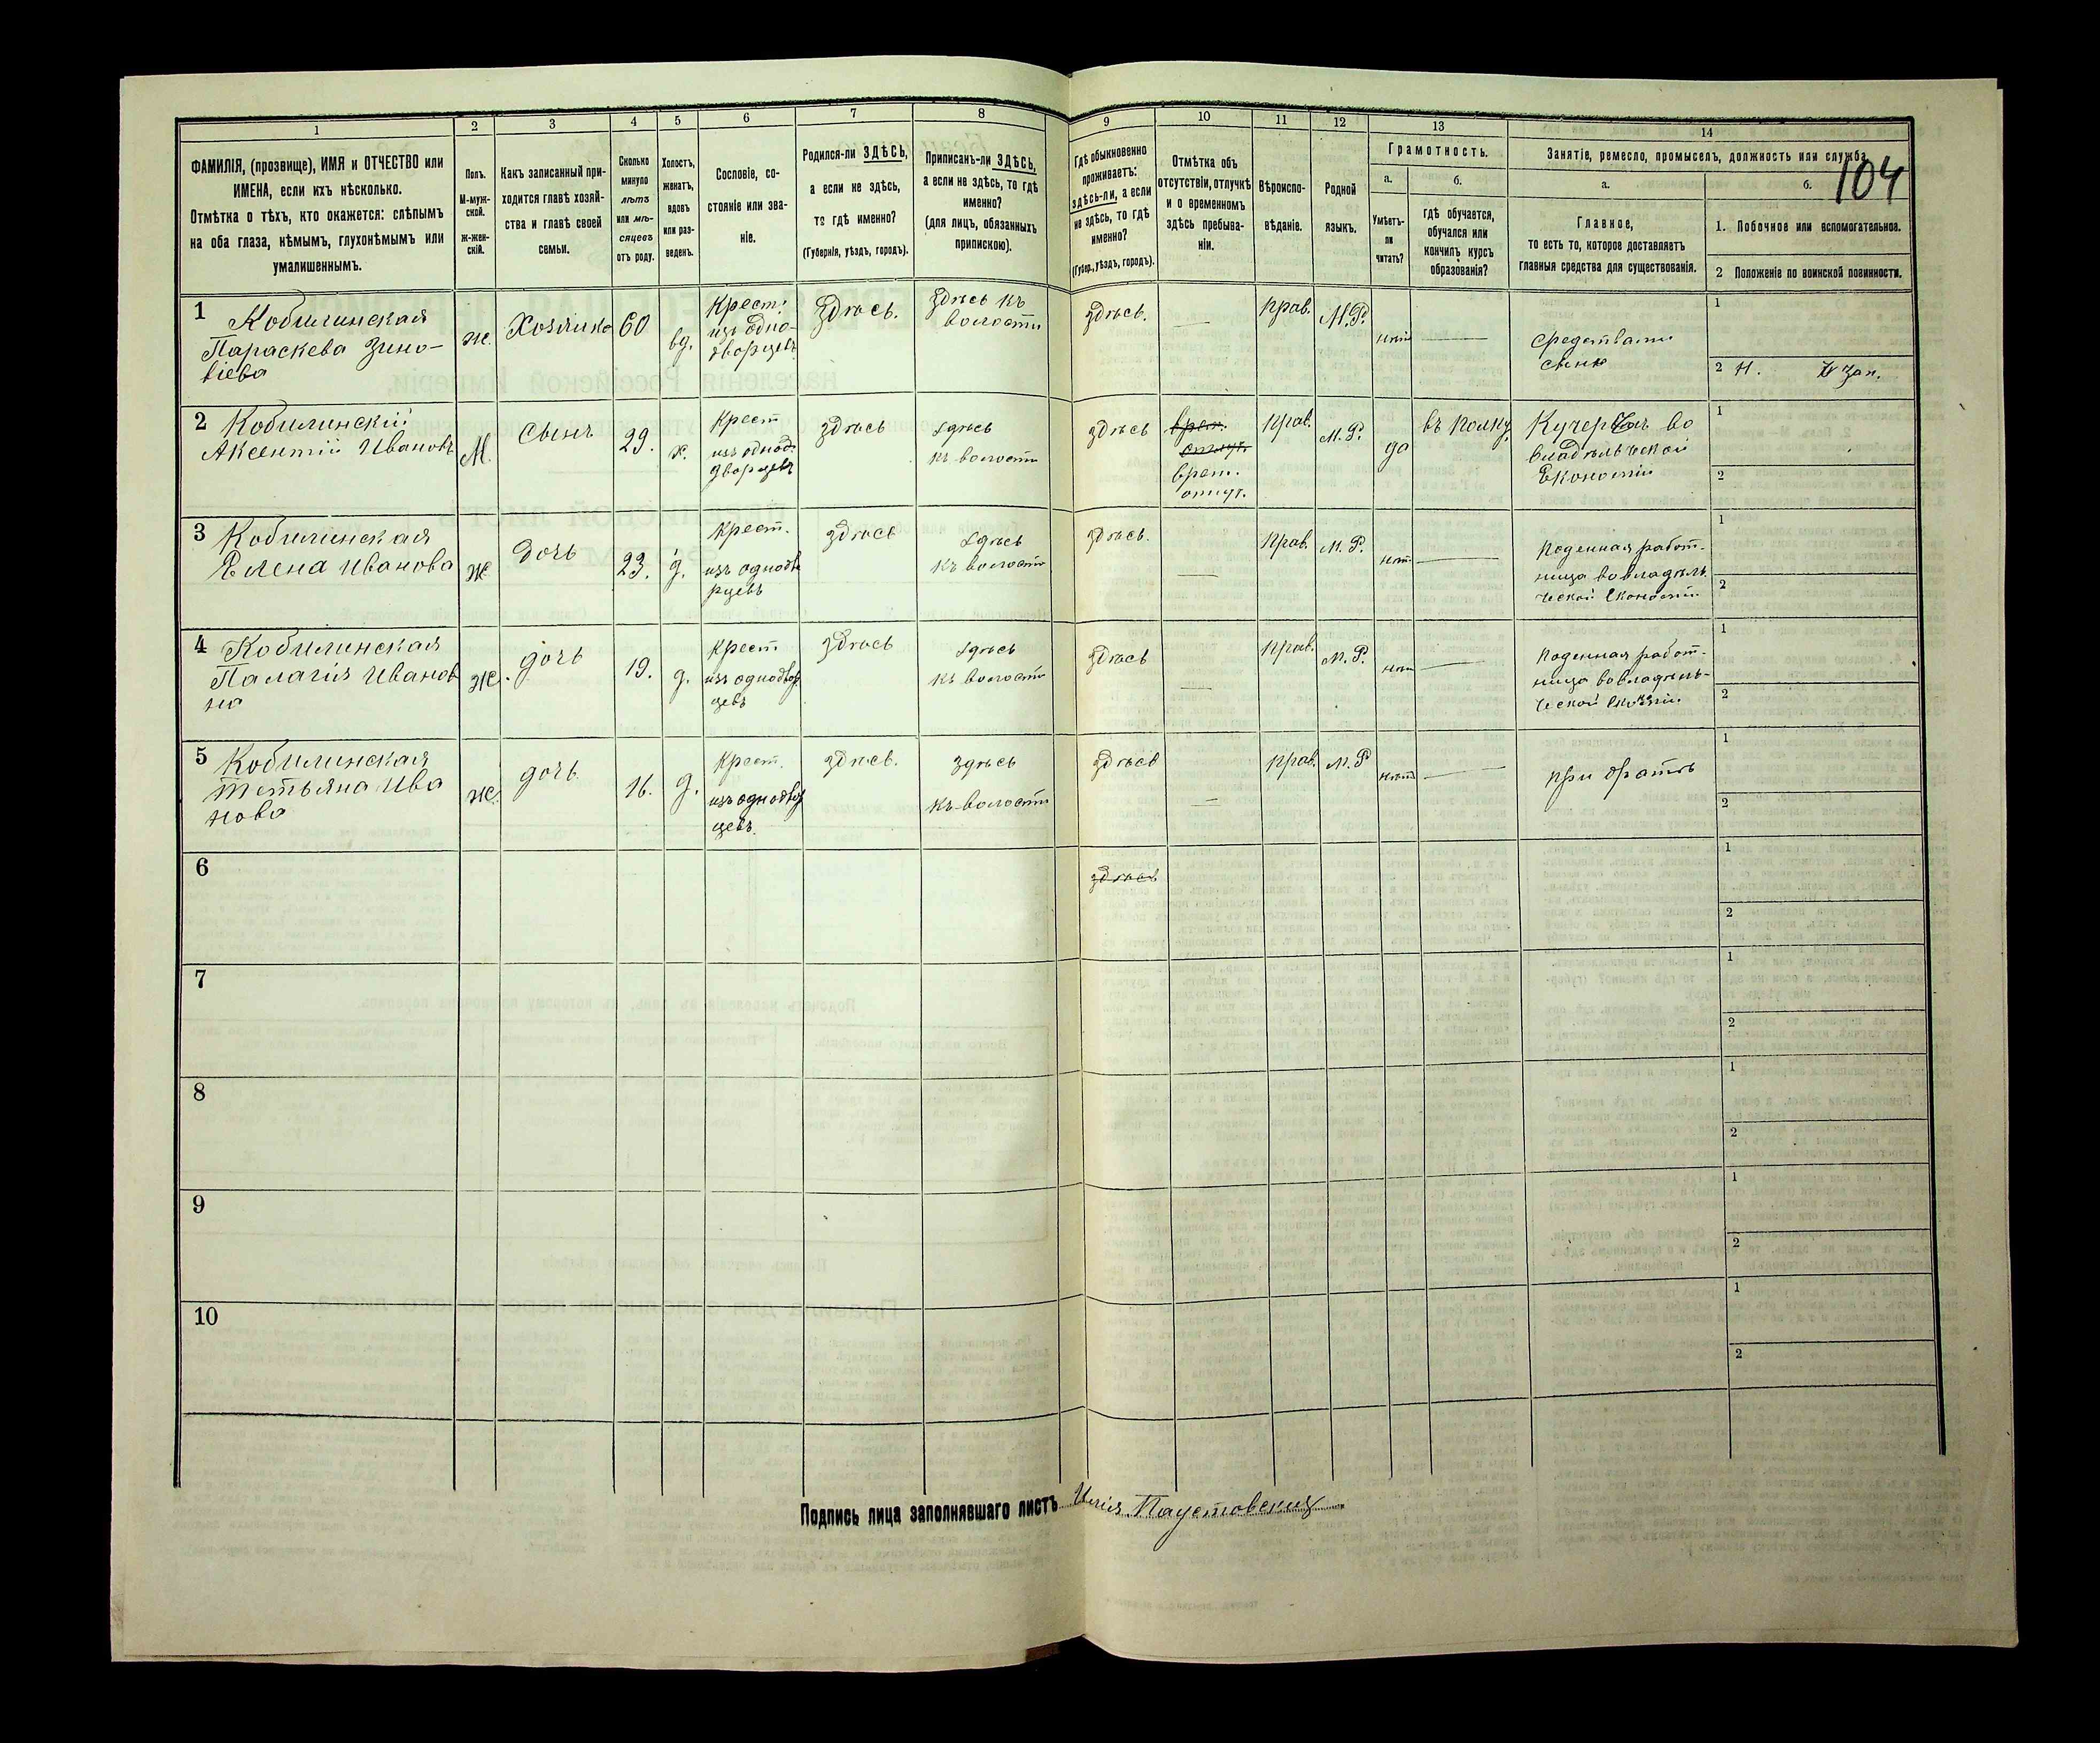 104
1
2
3
4
5
6
7
8
9
10
11
12
13
14
ФАМИЛІЯ, (прозвище), ИМЯ и ОТЧЕСТВО или
ИМЕНА, если ихъ нѣсколько.
Отмѣтка о тѣхъ, кто окажется: слѣпымъ
на оба глаза, нѣмымъ, глухонѣмымъ или
умалишеннымъ.
Полъ.
М-муж-
ской.
ж-жен-
скій.
Какъ записанный при-
ходится главѣ хозяй-
ства и главѣ своей
семьи.
Сколько
минуло
лѣтъ
или мѣ-
сяцевъ
отъ роду.
Холостъ,
женатъ,
вдовъ
или раз-
веденъ.
Сословіе, со-
стояніе или зва-
ніе.
Родился-ли ЗДѢСЬ,
а если не здѣсь,
то гдѣ именно?
(Губернія, уѣздъ, городъ).
Приписанъ-ли ЗДѢСЬ,
а если не здѣсь, то гдѣ
именно?
(для лицъ, обязанныхъ
припискою).
Гдѣ обыкновенно
проживаетъ:
здѣсь-ли, а если
не здѣсь, то гдѣ
именно?
(Губер., уѣздъ, городъ).
Отмѣтка объ
отсутствіи, отлучкѣ
и о временномъ
здѣсь пребыва-
ніи.
Вѣроиспо-
вѣданіе.
Родной
языкъ.
Грамотность.
а.
Умѣетъ-
ли
читать?
б.
гдѣ обучается,
обучался или
кончилъ курсъ
образованія?
Занятіе, ремесло, промыселъ, должность или служба.
а.
Главное,
то есть то, которое доставляетъ
главныя средства для существованія.
б.
1. Побочное или вспомогательное.
2 Положеніе по воинской повинности.
1
Кобилинская
Параскева Зино-
віева
ж.
Хозяйка
60
вд.
Крест.
изъ одно-
дворцевъ
здѣсь.
здѣсь къ
волости
здѣсь.
—
прав.
М.Р.
нѣтъ
—
Средствами
сына
1
2 Н.
2
Кобилинскій
Аксентій Ивановъ
М.
Сынъ
29.
х.
Крест
изъ однод-
дворцевъ
здѣсь
здѣсь
къ волости
здѣсь
врем.
отлуч.
врем.
отлуч.
прав.
М.Р.
да
въ полку
Кучеръ во
владѣльческой
Економіи
1
2
3
Кобилинская
Елена Иванова
ж
дочь
23.
д.
Крест.
изъ однодво
рцевъ
здѣсь
здѣсь
къ волости
здѣсь.
—
прав.
М.Р.
нѣтъ
—
Поденная работ-
ница во владѣль-
ческой Економіи
1
2
4
Кобилинская
Палагія Иванов
на
ж.
дочь
19.
д.
Крест
изъ однодвор
цевъ
здѣсь
здѣсь
къ волости
здѣсь
—
прав.
М.Р.
нѣтъ
—
Поденная работ-
ница во владѣль-
ческой
1
2
5
Кобилинская
Тетьяна Ива
нова
ж.
дочь
16.
д.
Крест.
изъ однодвор
цевъ.
здѣсь.
здѣсь
къ волости
здѣсь
—
прав.
М.Р
нѣтъ
—
при братѣ
1
2
6
здѣсь
1
2
7
1
2
8
1
2
9
1
2
10
1
2
Подпись лица заполнявшаго листъ Илія Паустовскій